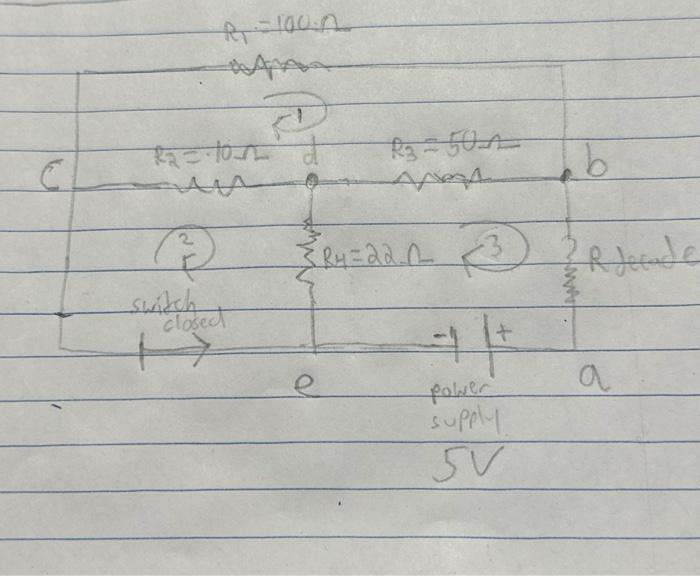 R1 = 100 Ω
1
R2 = 10 Ω
d
R3 = 50 Ω
C
b
2
R4 = 22 Ω
3
R decade
switch
closed
- +
e
a
power
supply
5V